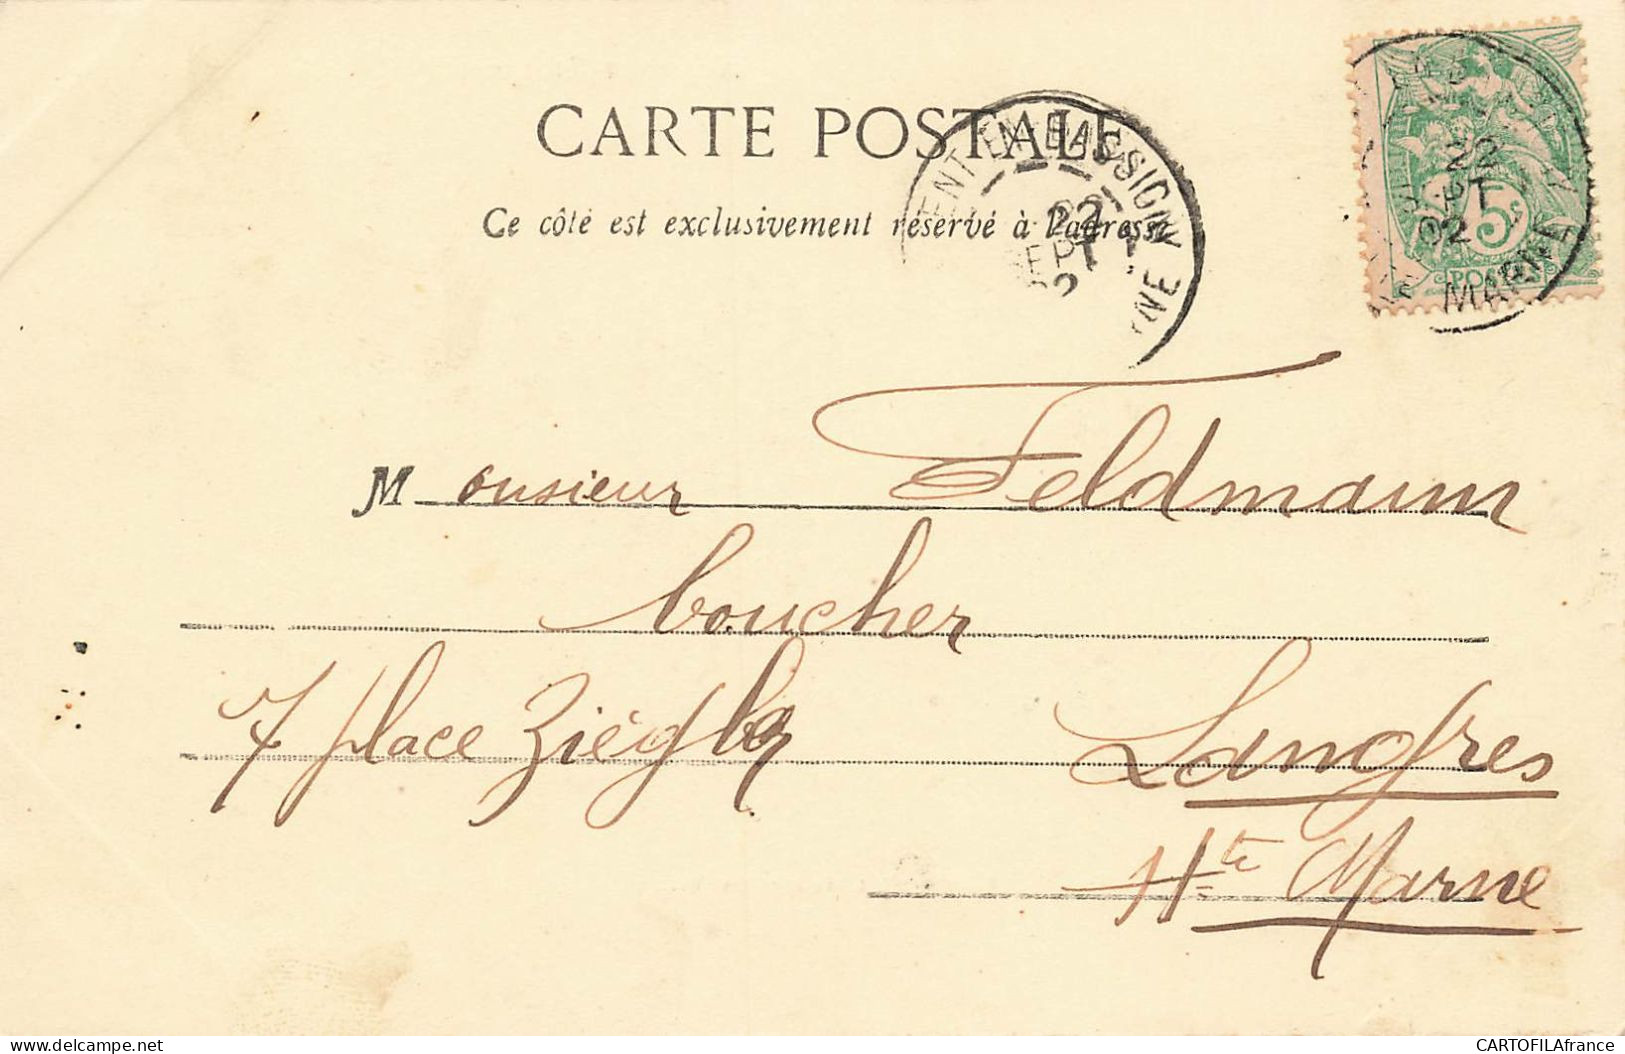 CARTE POSTALE
Ce côté est exclusivement réservé à l'adresse
ENT-EN-BASSIGNY
22
SEPT
02
MARNE
22
SEPT
02
5c
POSTES
MARNE
Monsieur Feldmann
boucher
7 place Ziégler Langres
Hte Marne
CARTOFILAfrance
delcampe.net